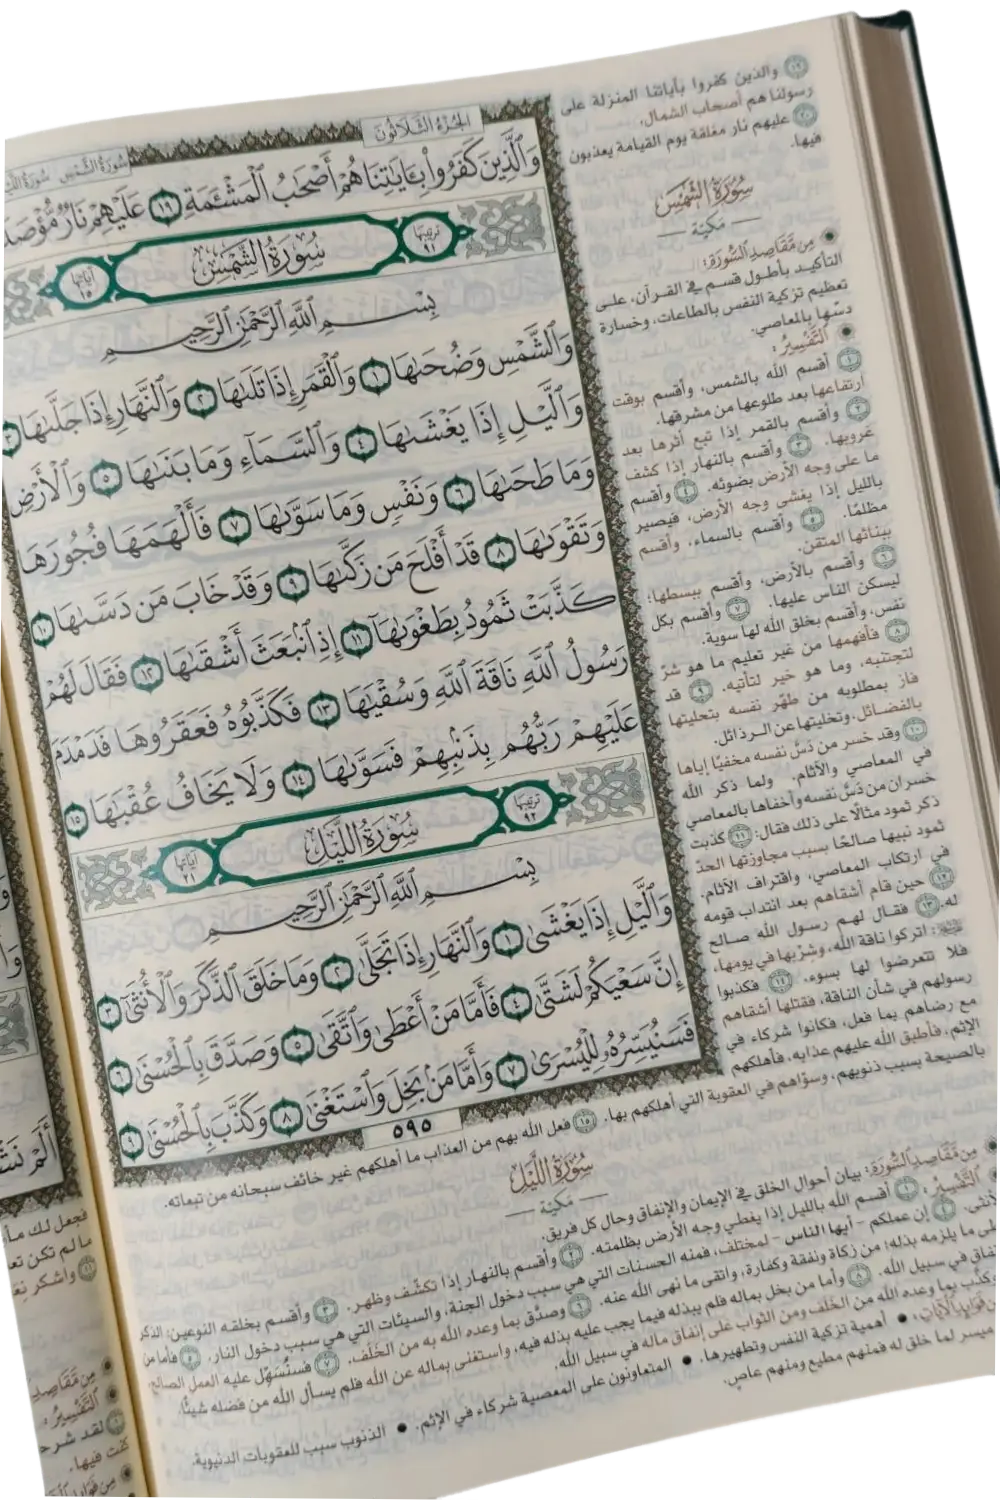 الجزء الثلاثون
سورة الشمس
وَٱلَّذِينَ كَفَرُوا۟ بِـَٔايَـٰتِنَا هُمْ أَصْحَـٰبُ ٱلْمَشْـَٔمَةِ ١٩ عَلَيْهِمْ نَارٌ
ترتيبها ٩١
سُورَةُ الشَّمْسِ
آياتها ١٥
بِسْمِ ٱللَّهِ ٱلرَّحْمَـٰنِ ٱلرَّحِيمِ
وَٱلشَّمْسِ وَضُحَىٰهَا ١ وَٱلْقَمَرِ إِذَا تَلَىٰهَا ٢ وَٱلنَّهَارِ إِذَا جَلَّىٰهَا ٣
وَٱلَّيْلِ إِذَا يَغْشَىٰهَا ٤ وَٱلسَّمَآءِ وَمَا بَنَىٰهَا ٥ وَٱلْأَرْضِ
وَمَا طَحَىٰهَا ٦ وَنَفْسٍ وَمَا سَوَّىٰهَا ٧ فَأَلْهَمَهَا فُجُورَهَا
وَتَقْوَىٰهَا ٨ قَدْ أَفْلَحَ مَن زَكَّىٰهَا ٩ وَقَدْ خَابَ مَن دَسَّىٰهَا ١٠
كَذَّبَتْ ثَمُودُ بِطَغْوَىٰهَآ ١١ إِذِ ٱنۢبَعَثَ أَشْقَىٰهَا ١٢ فَقَالَ لَهُمْ
رَسُولُ ٱللَّهِ نَاقَةَ ٱللَّهِ وَسُقْيَـٰهَا ١٣ فَكَذَّبُوهُ فَعَقَرُوهَا فَدَمْدَمَ
عَلَيْهِمْ رَبُّهُم بِذَنۢبِهِمْ فَسَوَّىٰهَا ١٤ وَلَا يَخَافُ عُقْبَـٰهَا ١٥
ترتيبها ٩٢
سُورَةُ اللَّيْلِ
آياتها ٢١
بِسْمِ ٱللَّهِ ٱلرَّحْمَـٰنِ ٱلرَّحِيمِ
وَٱلَّيْلِ إِذَا يَغْشَىٰ ١ وَٱلنَّهَارِ إِذَا تَجَلَّىٰ ٢ وَمَا خَلَقَ ٱلذَّكَرَ وَٱلْأُنثَىٰٓ ٣
إِنَّ سَعْيَكُمْ لَشَتَّىٰ ٤ فَأَمَّا مَنْ أَعْطَىٰ وَٱتَّقَىٰ ٥ وَصَدَّقَ بِٱلْحُسْنَىٰ ٦
فَسَنُيَسِّرُهُۥ لِلْيُسْرَىٰ ٧ وَأَمَّا مَنۢ بَخِلَ وَٱسْتَغْنَىٰ ٨ وَكَذَّبَ بِٱلْحُسْنَىٰ ٩
٥٩٥
١٩ والذين كفروا بآياتنا المنزلة على
رسولنا هم أصحاب الشمال.
٢٠ عليهم نار مغلقة يوم القيامة يعذبون
فيها.
سُورَةُ الشَّمْسِ
— مَكيّة —
• مِن مَّقَاصِدِ السُّورَةِ:
التأكيد بأطول قسم في القرآن، على
تعظيم تزكية النفس بالطاعات، وخسارة
دسّها بالمعاصي.
• التَّفْسِيرُ:
١ أقسم الله بالشمس، وأقسم بوقت
ارتفاعها بعد طلوعها من مشرقها.
٢ وأقسم بالقمر إذا تبع أثرها بعد
غروبها. ٣ وأقسم بالنهار إذا كشف
ما على وجه الأرض بضوئه. ٤ وأقسم
بالليل إذا يغشى وجه الأرض، فيصير
مظلمًا. ٥ وأقسم بالسماء، وأقسم
ببنائها المتقن.
٦ وأقسم بالأرض، وأقسم ببسطها؛
ليسكن الناس عليها. ٧ وأقسم بكل
نفس، وأقسم بخلق الله لها سوية.
٨ فأفهمها من غير تعليم ما هو شرّ
لتجتنبه، وما هو خير لتأتيه. ٩ قد
فاز بمطلوبه من طهّر نفسه بتحليتها
بالفضائل، وتخليتها عن الرذائل.
١٠ وقد خسر من دسّ نفسه مخفيًا إياها
في المعاصي والآثام. ولما ذكر الله
خسران من دسّ نفسه وأخفاها بالمعاصي
ذكر ثمود مثالًا على ذلك فقال: ١١ كذبت
ثمود نبيها صالحًا بسبب مجاوزتها الحدّ
في ارتكاب المعاصي، واقتراف الآثام.
١٢ حين قام أشقاهم بعد انتداب قومه
له. ١٣ فقال لهم رسول الله صالح
: اتركوا ناقة الله، وشربها في يومها،
فلا تتعرضوا لها بسوء. ١٤ فكذبوا
رسولهم في شأن الناقة، فقتلها أشقاهم
مع رضاهم بما فعل، فكانوا شركاء في
الإثم، فأطبق الله عليهم عذابه، فأهلكهم
بالصيحة بسبب ذنوبهم، وسوّاهم في العقوبة التي أهلكهم بها. ١٥ فعل الله بهم من العذاب ما أهلكهم غير خائف سبحانه من تبعاته.
سُورَةُ اللَّيْلِ
— مَكيّة —
• مِن مَّقَاصِدِ السُّورَةِ: بيان أحوال الخلق في الإيمان والإنفاق وحال كل فريق.
• التَّفْسِيرُ: ١ أقسم الله بالليل إذا يغطي وجه الأرض بظلمته. ٢ وأقسم بالنهار إذا تكشّف وظهر. ٣ وأقسم بخلقه النوعين: الذكر
٤ إن عملكم - أيها الناس - لمختلف، فمنه الحسنات التي هي سبب دخول الجنة، والسيئات التي هي سبب دخول النار. ٥ فأما من
ما يلزمه بذله؛ من زكاة ونفقة وكفارة، واتقى ما نهى الله عنه. ٦ وصدّق بما وعده الله به من الخَلَف. ٧ فسنُسهّل عليه العمل الصالح
في سبيل الله. ٨ وأما من بخل بماله فلم يبذله فيما يجب عليه بذله فيه، واستغنى بماله عن الله فلم يسأل الله من فضله شيئًا.
بما وعده الله من الخَلَف ومن الثواب على إنفاق ماله في سبيل الله.
• أهمية تزكية النفس وتطهيرها. • المتعاونون على المعصية شركاء في الإثم. • الذنوب سبب للعقوبات الدنيوية.
ميسر لما خلق له فمنهم مطيع ومنهم عاصٍ.